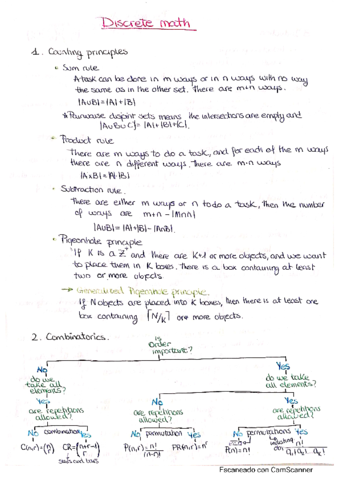 Discrete math
1. Counting principles
• Sum rule
A task can be done in m ways or in n ways with no way
the same as in the other set. There are m+n ways.
|A∪B|=|A|+|B|
* Pairwise disjoint sets means the intersections are empty and
|A∪B∪C|= |A|+|B|+|C|.
• Product rule
There are m ways to do a task, and for each of the m ways
there are n different ways. There are m·n ways
|A×B|=|A|·|B|
• Subtraction rule.
There are either m ways or n to do a task, then the number
of ways are m+n-|m∩n|
|A∪B|=|A|+|B|-|A∩B|.
• Pigeonhole principle
If K is a Z⁺ and there are K+1 or more objects, and we want
to place them in K boxes. There is a box containing at least
two or more objects
→ Generalized Pigeonhole principle.
If N objects are placed into K boxes, then there is at least one
box containing ⌈N/K⌉ or more objects.
2. Combinatorics.
Is
order
important?
No
Yes
do we
take all
elements?
do we take
all elements?
Yes
No
Yes
are repetitions
allowed?
are repetitions
allowed?
are repetitions
allowed?
No combination Yes
No permutation Yes
No permutations Yes
C(n,r)=(n r)
CR=(n+r-1 r)
P(n,r)= n!/(n-r)!
PR(n,r)=nʳ
P(n)=n!
n!
Escaneado con CamScanner